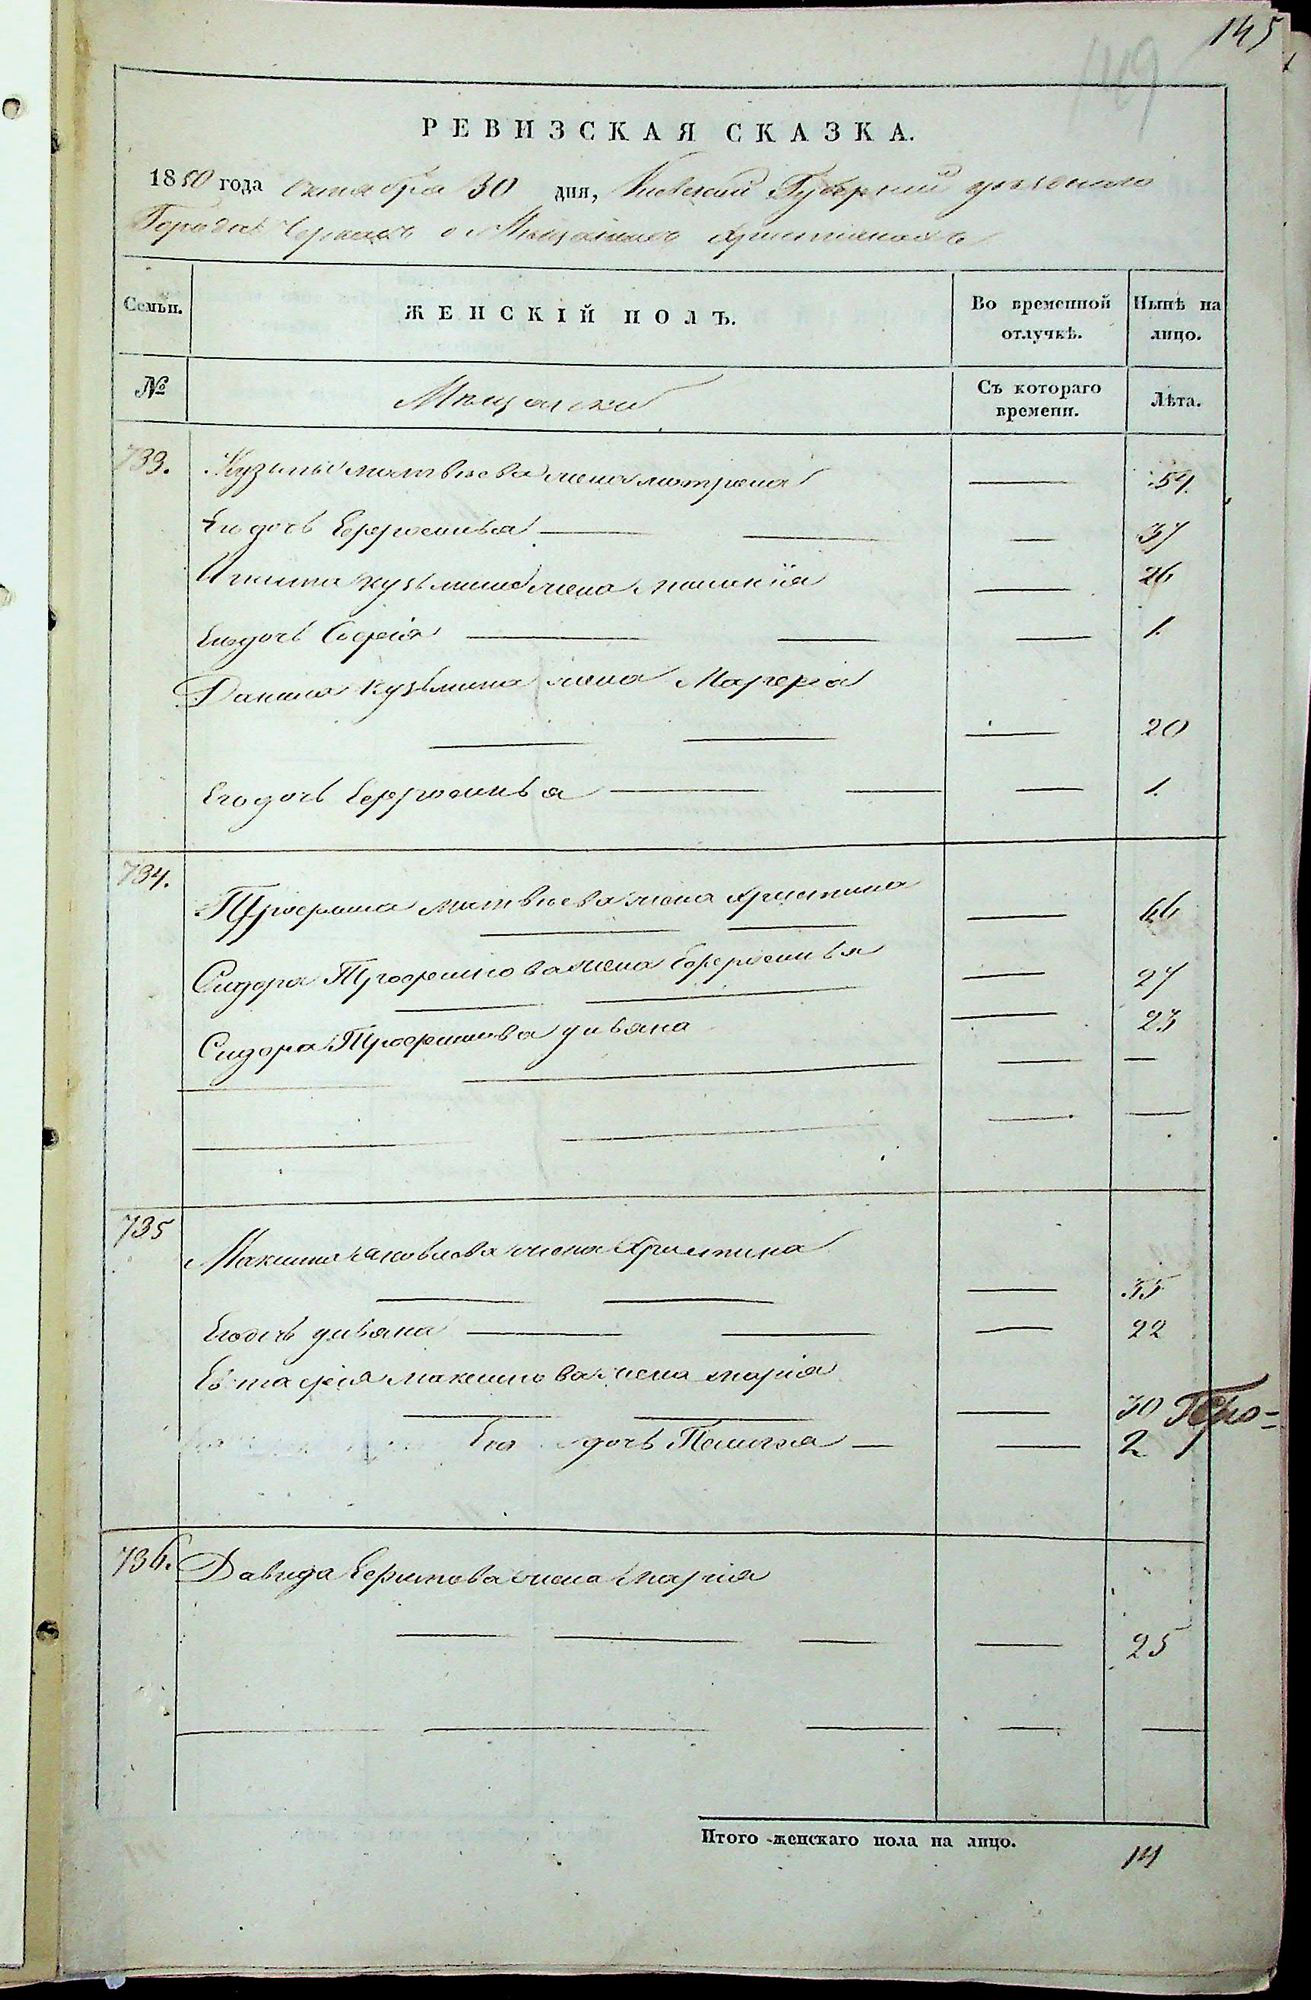 145
149
РЕВИЗСКАЯ СКАЗКА.
1850 года октября 30 дня, Киевской Губернии уездного
Города Черкасъ о Мещанахъ христианахъ
Семьи.
ЖЕНСКІЙ ПОЛЪ.
Во временной отлучкѣ.
Нынѣ на лицо.
№
Мещанки
Съ котораго времени.
Лѣта.
733. Кузьмы Матвеева жена Матрена — 54.
Его дочь Ефросинья — 37
Никита Кузьмина жена — 26
Его дочь Софія — 1.
Данила Кузьмина жена
— 20
Его дочь Ефросинья — 1.
734. Трофима Матвеева жена Христина — 66
Сидора Трофимова жена Ефросинья — 27
Сидора Трофимова Ульяна — 23
735 Максима Яковлева жена Христина
— 35
Его дочь Ульяна — 22
Евтафія Максимова жена Марія
— 30
Его дочь Пелагея — 2
736. Давида Ефимова жена Марія
— 25
Итого женскаго пола на лицо.
14